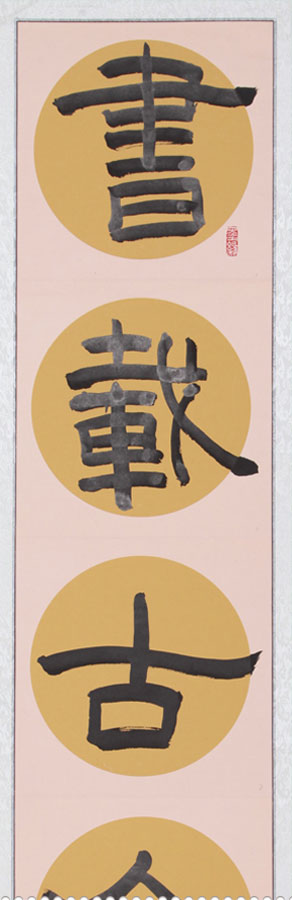 書載古